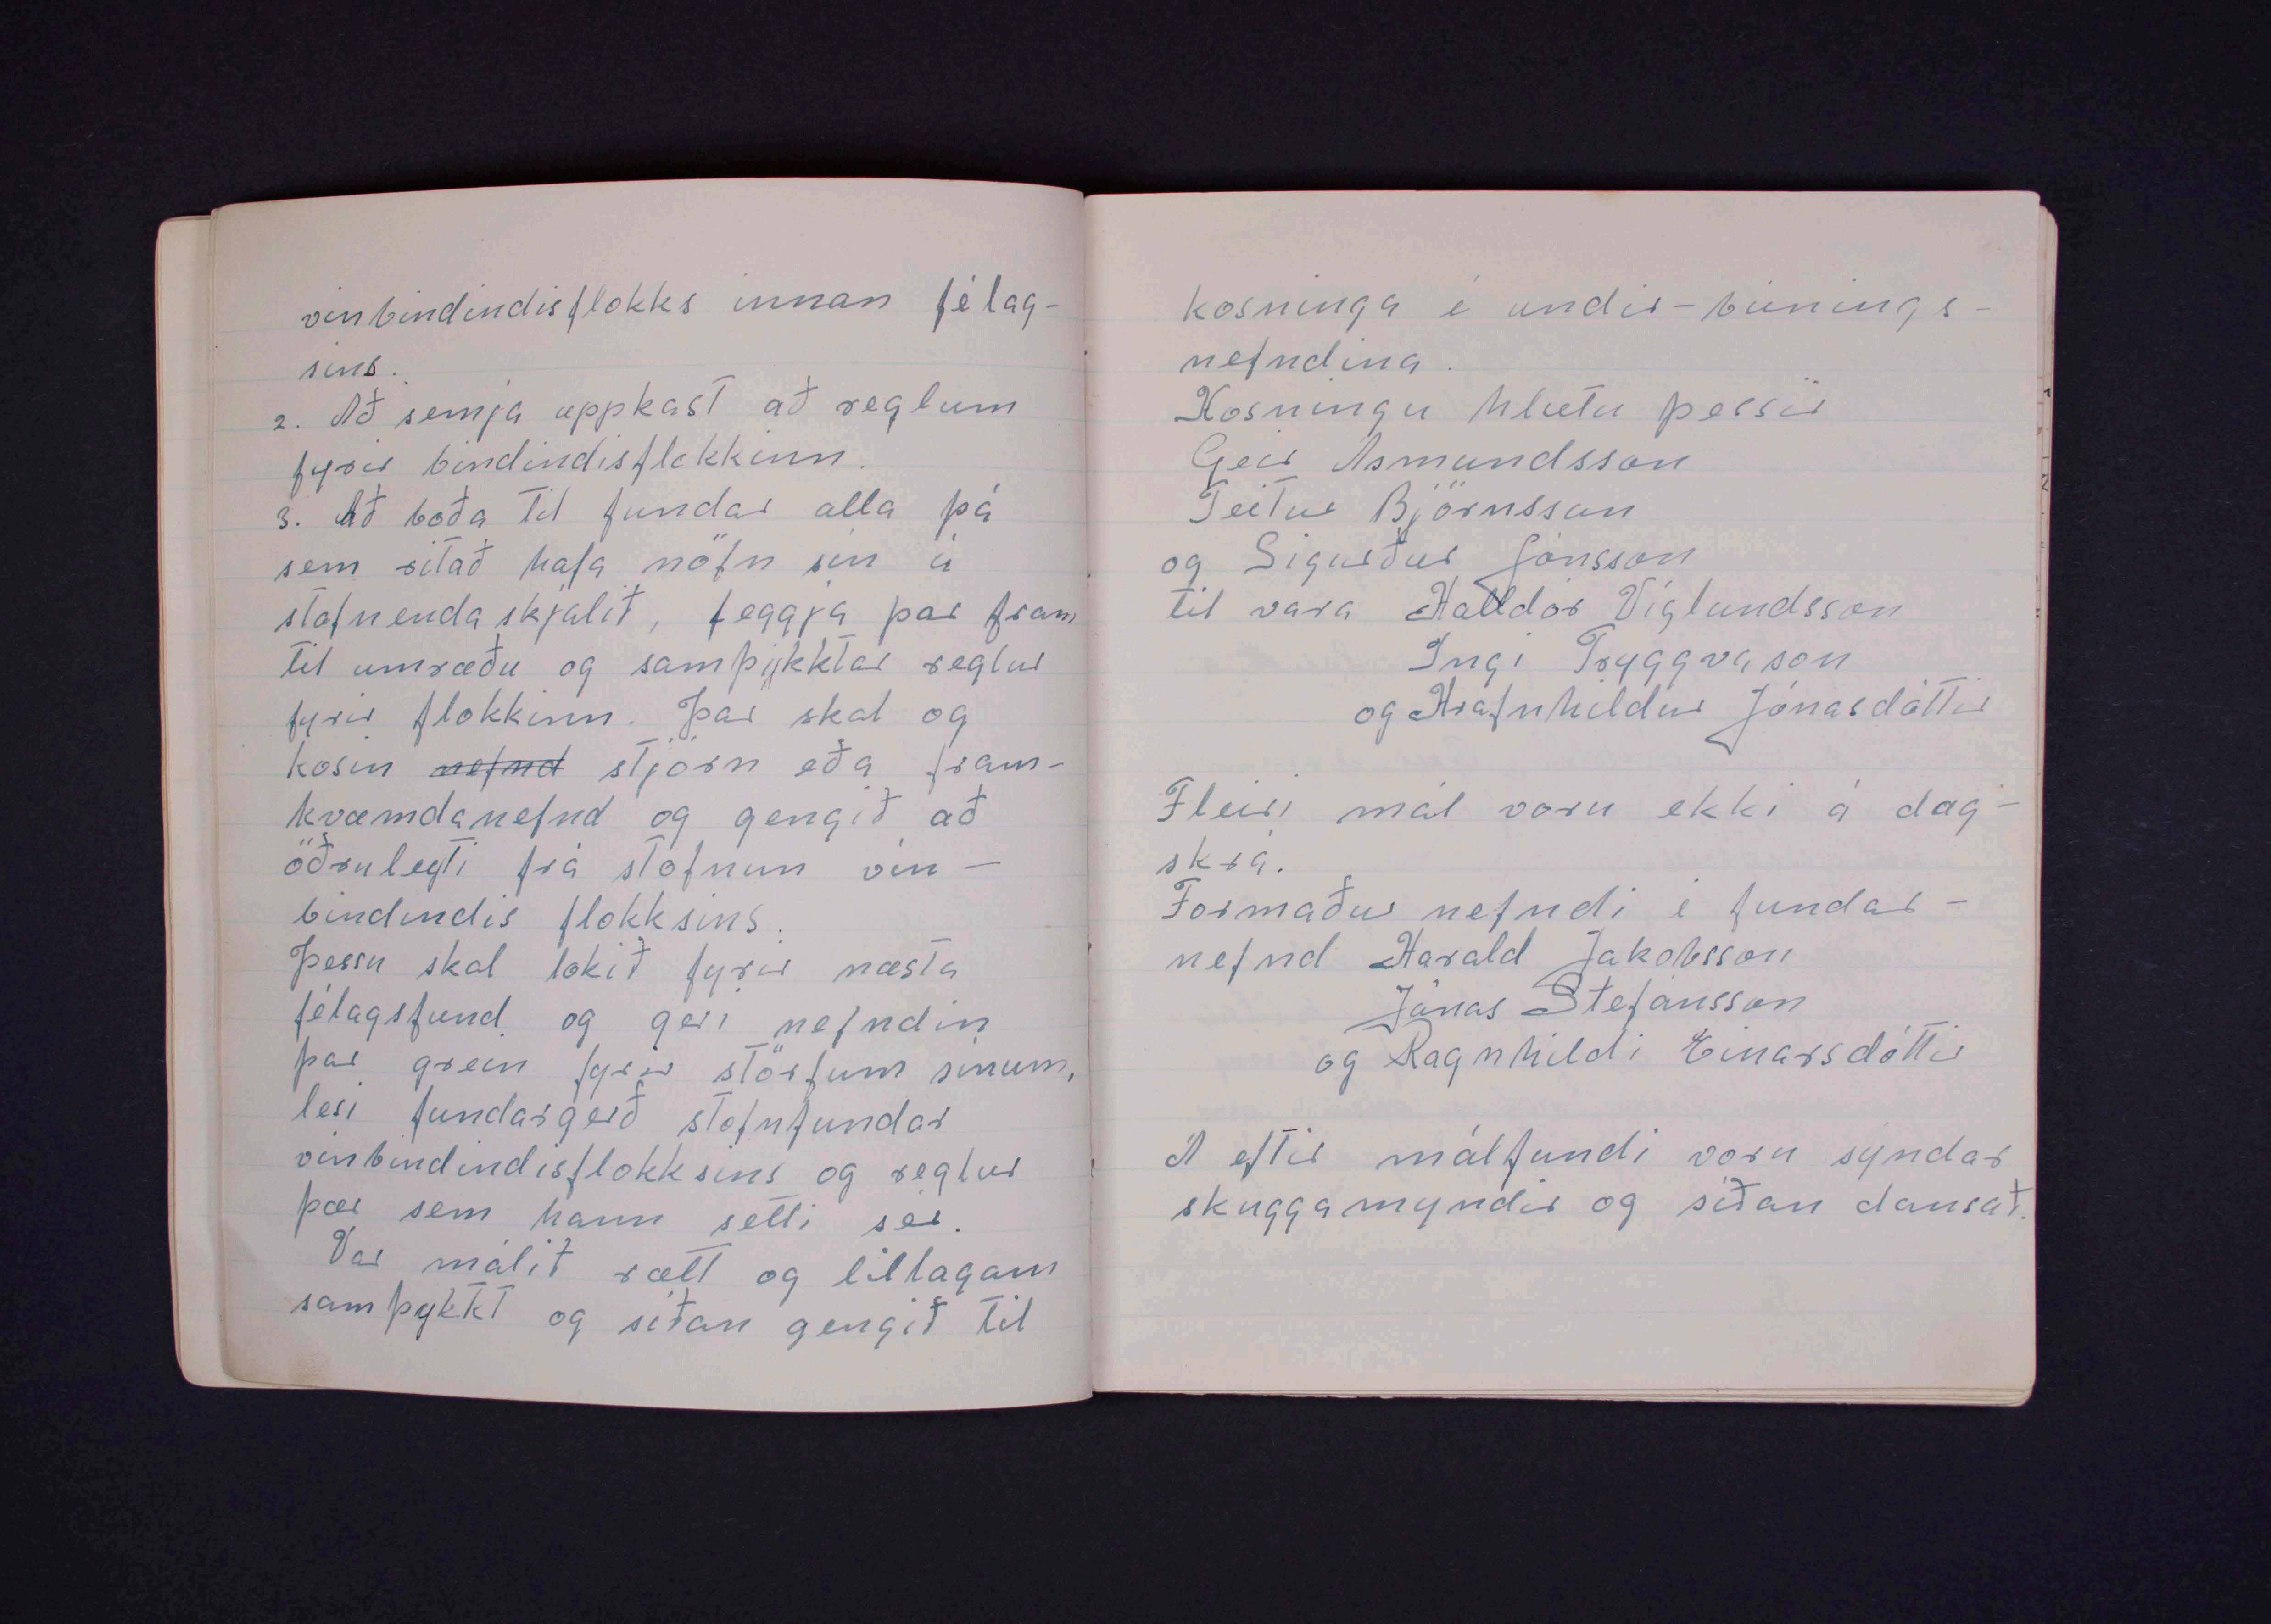 vínbindindisflokks innan félag-
sins.
2. Að semja uppkast að reglum
fyrir bindindisflokkinn.
3. Að boða til fundar alla þá
sem ritað hafa nöfn sín á
stofnendaskjalið, leggja þar fram
til umræðu og samþykktar reglur
fyrir flokkinn. Þar skal og
kosin nefnd stjórn eða fram-
kvæmdanefnd og gengið að
öðruleyti frá stofnun vín-
bindindis flokksins.
Þessu skal lokið fyrir næsta
félagsfund og geri nefndin
þar grein fyrir störfum sínum,
lesi fundargerð stofnfundar
vínbindindisflokksins og reglur
þær sem hann setti sér.
Var málið rætt og tillagam
samþykkt og síðan gengið til
kosninga í undir-búnings-
nefndina.
Kosningu hlutu þessir
Geir Ásmundsson
Teitur Björnsson
og Sigurður Jónsson
til vara Halldór Víglundsson
Ingi Tryggvason
og Hrafnhildur Jónasdóttir
Fleiri mál voru ekki á dag-
skrá.
Formaður nefndi í fundar-
nefnd Harald Jakobsson
Jónas Stefánsson
og Ragnhildi Einarsdóttir
Á eftir málfundi voru sýndar
skuggamyndir og síðan dansað.